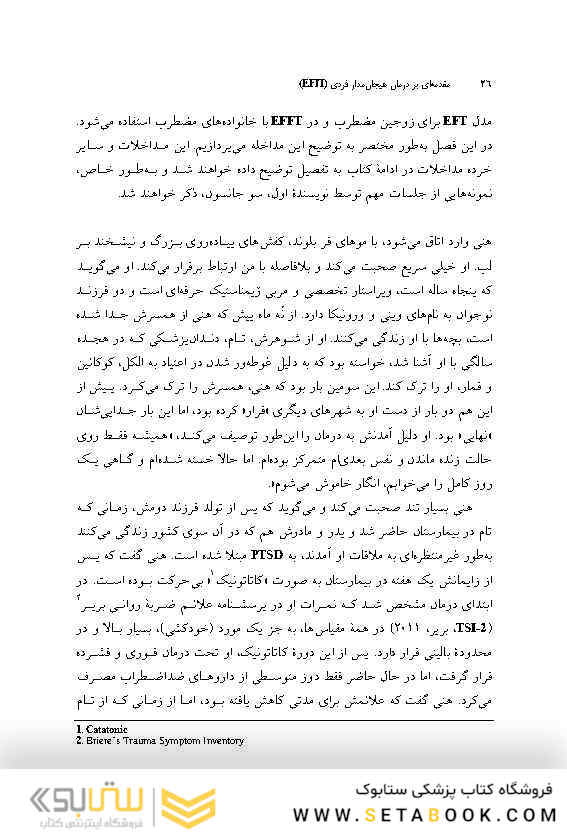 ۲۶ مقدمه‌ای بر درمان هیجان‌مدار فردی (EFIT)
مدل EFT برای زوجین مضطرب و در EFFT با خانواده‌های مضطرب استفاده می‌شود.
در این فصل به‌طور مختصر به توضیح این مداخله می‌پردازیم. این مداخلات و سایر
خرده مداخلات در ادامهٔ کتاب به تفصیل توضیح داده خواهند شد و به‌طور خاص،
نمونه‌هایی از جلسات مهم توسط نویسندهٔ اول، سو جانسون، ذکر خواهند شد.
هنی وارد اتاق می‌شود، با موهای فر بلوند، کفش‌های پیاده‌روی بزرگ و نیشخند بر
لب. او خیلی سریع صحبت می‌کند و بلافاصله با من ارتباط برقرار می‌کند. او می‌گوید
که پنجاه ساله است، ویراستار تخصصی و مربی ژیمناستیک حرفه‌ای است و دو فرزند
نوجوان به نام‌های وینی و ورونیکا دارد. از نُه ماه پیش که هنی از همسرش جدا شده
است، بچه‌ها با او زندگی می‌کنند. او از شوهرش، تام، دندان‌پزشکی که در هجده
سالگی با او آشنا شد، خواسته بود که به دلیل غوطه‌ور شدن در اعتیاد به الکل، کوکائین
و قمار، او را ترک کند. این سومین بار بود که هنی، همسرش را ترک می‌کرد. پیش از
این هم دو بار از دست او به شهرهای دیگری «فرار» کرده بود، اما این بار جدایی‌شان
«نهایی» بود. او دلیل آمدنش به درمان را این‌طور توصیف می‌کند، «همیشه فقط روی
حالت زنده ماندن و نفس بعدی‌ام متمرکز بوده‌ام. اما حالا خسته شده‌ام و گاهی یک
روز را کامل می‌خوابم، انگار خاموش می‌شوم».
هنی بسیار تند صحبت می‌کند و می‌گوید که پس از تولد فرزند دومش، زمانی که
تام در بیمارستان حاضر شد و پدر و مادرش هم که در آن سوی کشور زندگی می‌کنند
به‌طور غیرمنتظره‌ای به ملاقات او آمدند، به PTSD مبتلا شده است. هنی گفت که پس
از زایمانش یک هفته در بیمارستان به صورت «کاتاتونیک۱» بی‌حرکت بوده است. در
ابتدای درمان مشخص شد که نمرات او در پرسشنامه علائم ضربهٔ روانی بریر۲
(TSI-2، بریر، ۲۰۱۱) در همهٔ مقیاس‌ها، به جز یک مورد (خودکشی)، بسیار بالا و در
محدودهٔ بالینی قرار دارد. پس از این دورهٔ کاتاتونیک، او تحت درمان فوری و فشرده
قرار گرفت، اما در حال حاضر فقط دوز متوسطی از داروهای ضداضطراب مصرف
می‌کرد. هنی گفت که علائمش برای مدتی کاهش یافته بود، اما از زمانی که از تام
1. Catatonic
2. Briere's Trauma Symptom Inventory
فروشگاه کتاب پزشکی ستابوک
WWW.SETABOOK.COM
ستابوک
فروشگاه اینترنتی کتاب